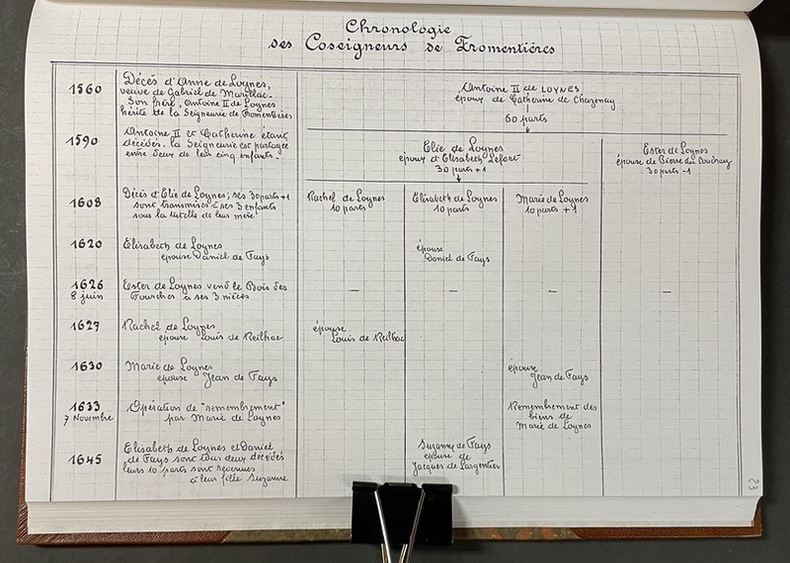 Chronologie
des Coseigneurs de Fromentières
1560
Décès d'Anne de Loynes,
veuve de Gabriel de Marillac.
Son frère, Antoine II de Loynes
hérite de la Seigneurie de Fromentières
Antoine II de LOYNES
époux de Catherine de Chazenay
60 parts
1590
Antoine II et Catherine étant
décédés, la Seigneurie est partagée
entre deux de leur cinq enfants.
Elie de Loynes
époux d'Elisabeth Lefort
30 parts +1
Ester de Loynes
épouse de Pierre du Coudray
30 parts -1
1608
Décès d'Elie de Loynes; ses 30 parts +1
sont transmises à ses 3 enfants
sous la tutelle de leur mère
Rachel de Loynes
10 parts
Elisabeth de Loynes
10 parts
Marie de Loynes
10 parts +1
1620
Elisabeth de Loynes
épouse Daniel de Fays
épouse
Daniel de Fays
1626
8 juin
Ester de Loynes vend le Bois des
Fourches à ses 3 nièces
– – – –
1627
Rachel de Loynes
épouse Louis de Reilhac
épouse
Louis de Reilhac
1630
Marie de Loynes
épouse Jean de Fays
épouse
Jean de Fays
1633
7 Novembre
Opération de "remembrement"
par Marie de Loynes
Remembrement des
biens de
Marie de Loynes
1645
Elisabeth de Loynes et Daniel
de Fays sont tous deux décédés
leurs 10 parts sont revenues
à leur fille Suzanne
Suzanne de Fays
épouse de
Jacques de Largentier
23